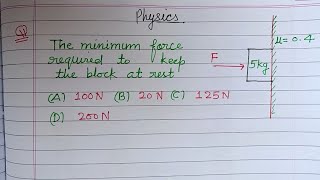 Physics
Q
The minimum force
required to keep
the block at rest
F
5kg
μ = 0.4
(A) 100N (B) 20N (C) 125N
(D) 200N